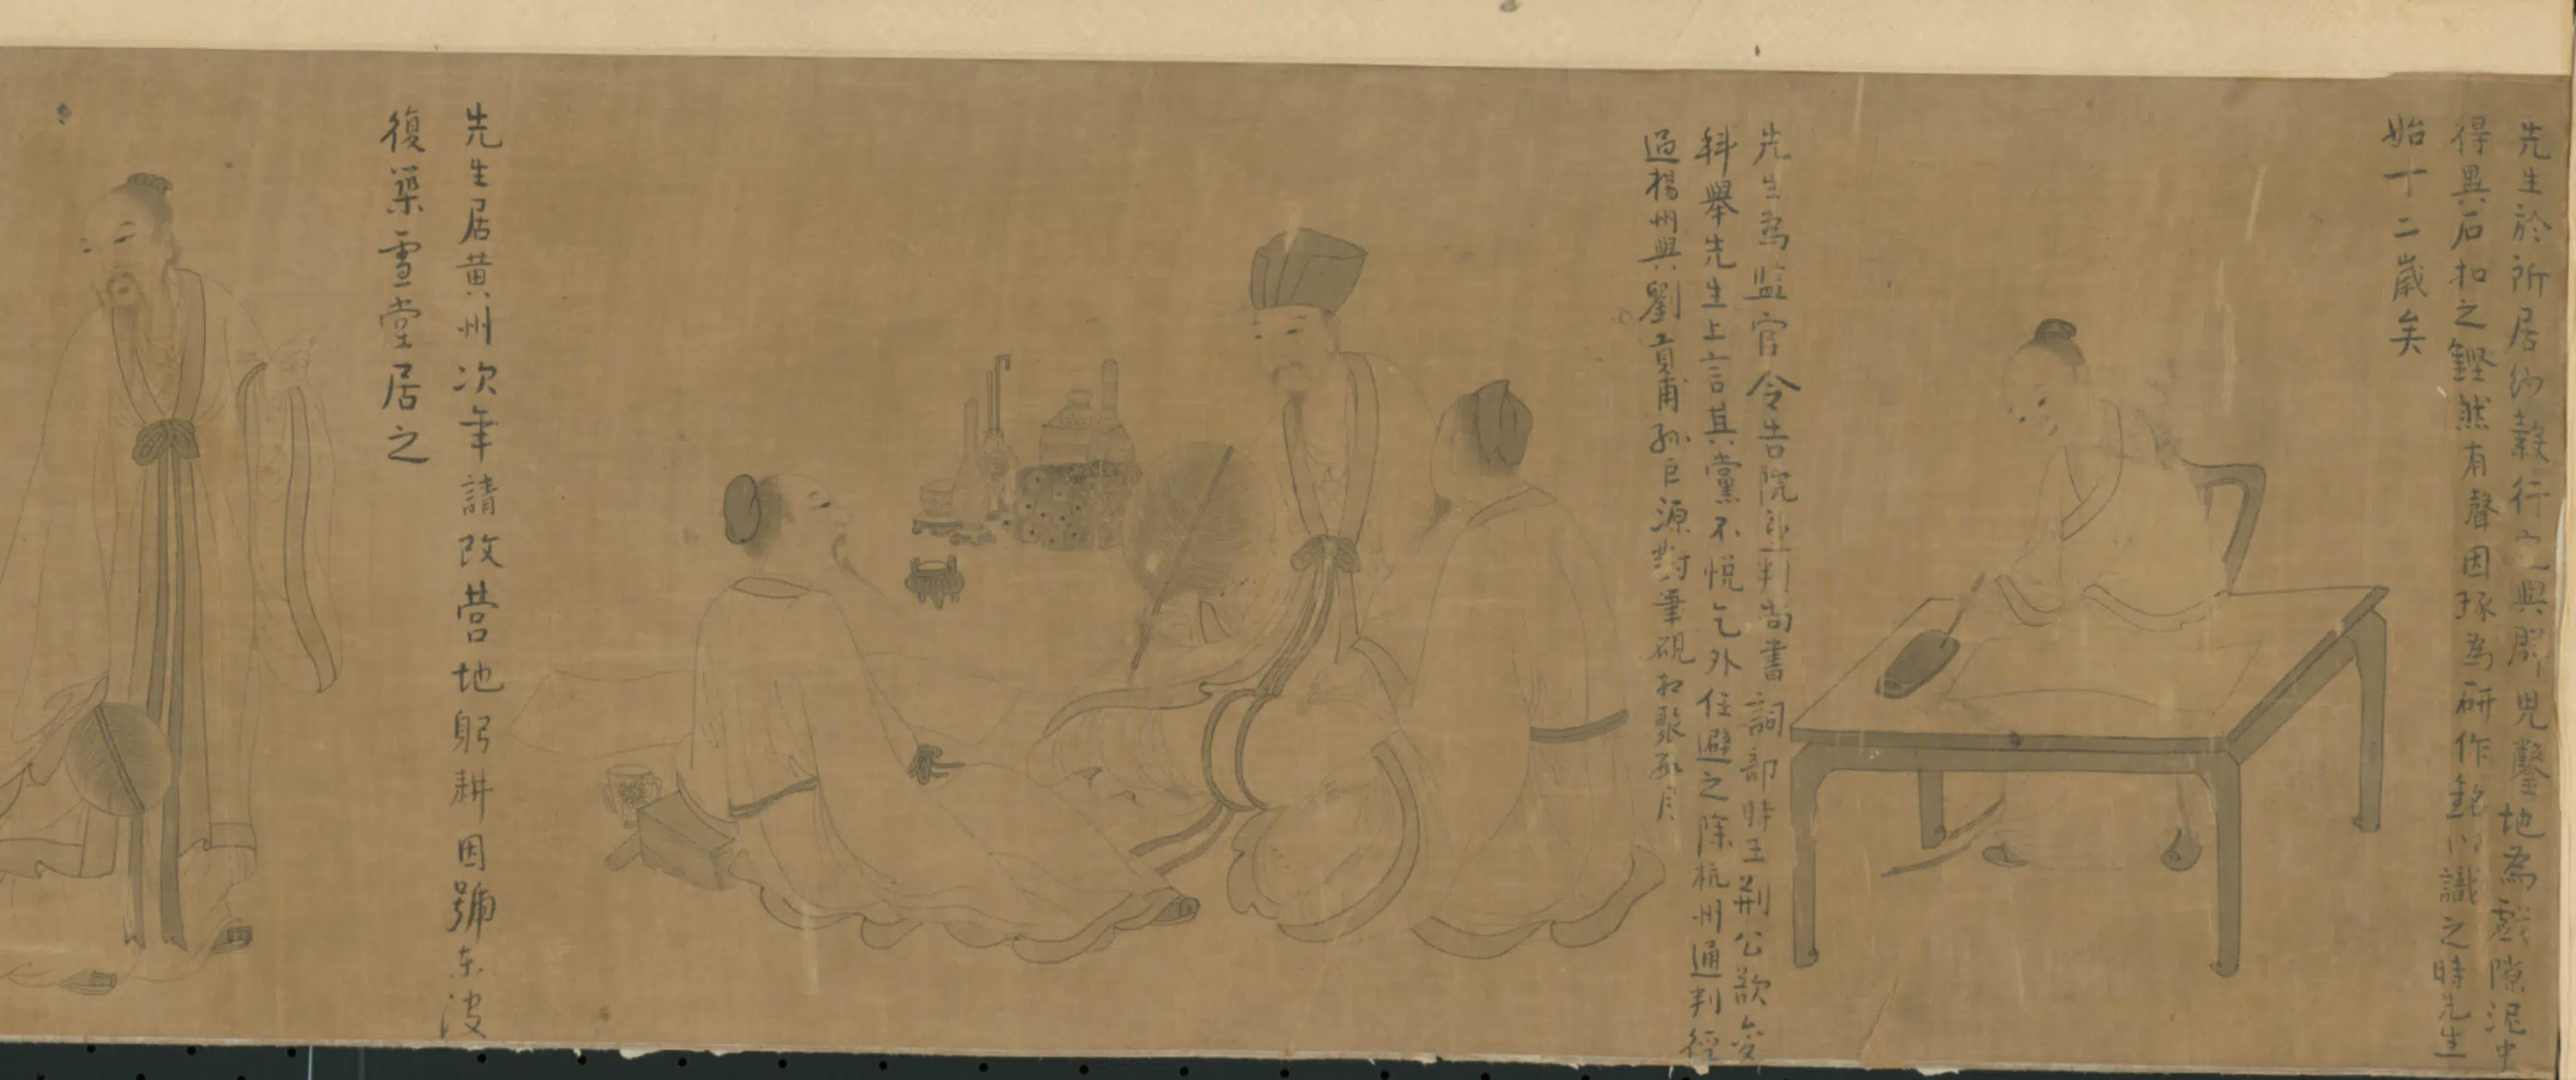 先生於所居紗縠行宅與群兒鑿地為戲隙泥中
得異石扣之鏗然有聲因琢為研作銘以識之時先生
始十二歲矣
先生為監官令告院判尚書詞部時王荊公欲變
科舉先生上言其黨不悅乞外任避之除杭州通判徑
過揚州與劉貢甫孫巨源對筆硯
先生居黃州次年請故營地躬耕因號東坡
復築雪堂居之